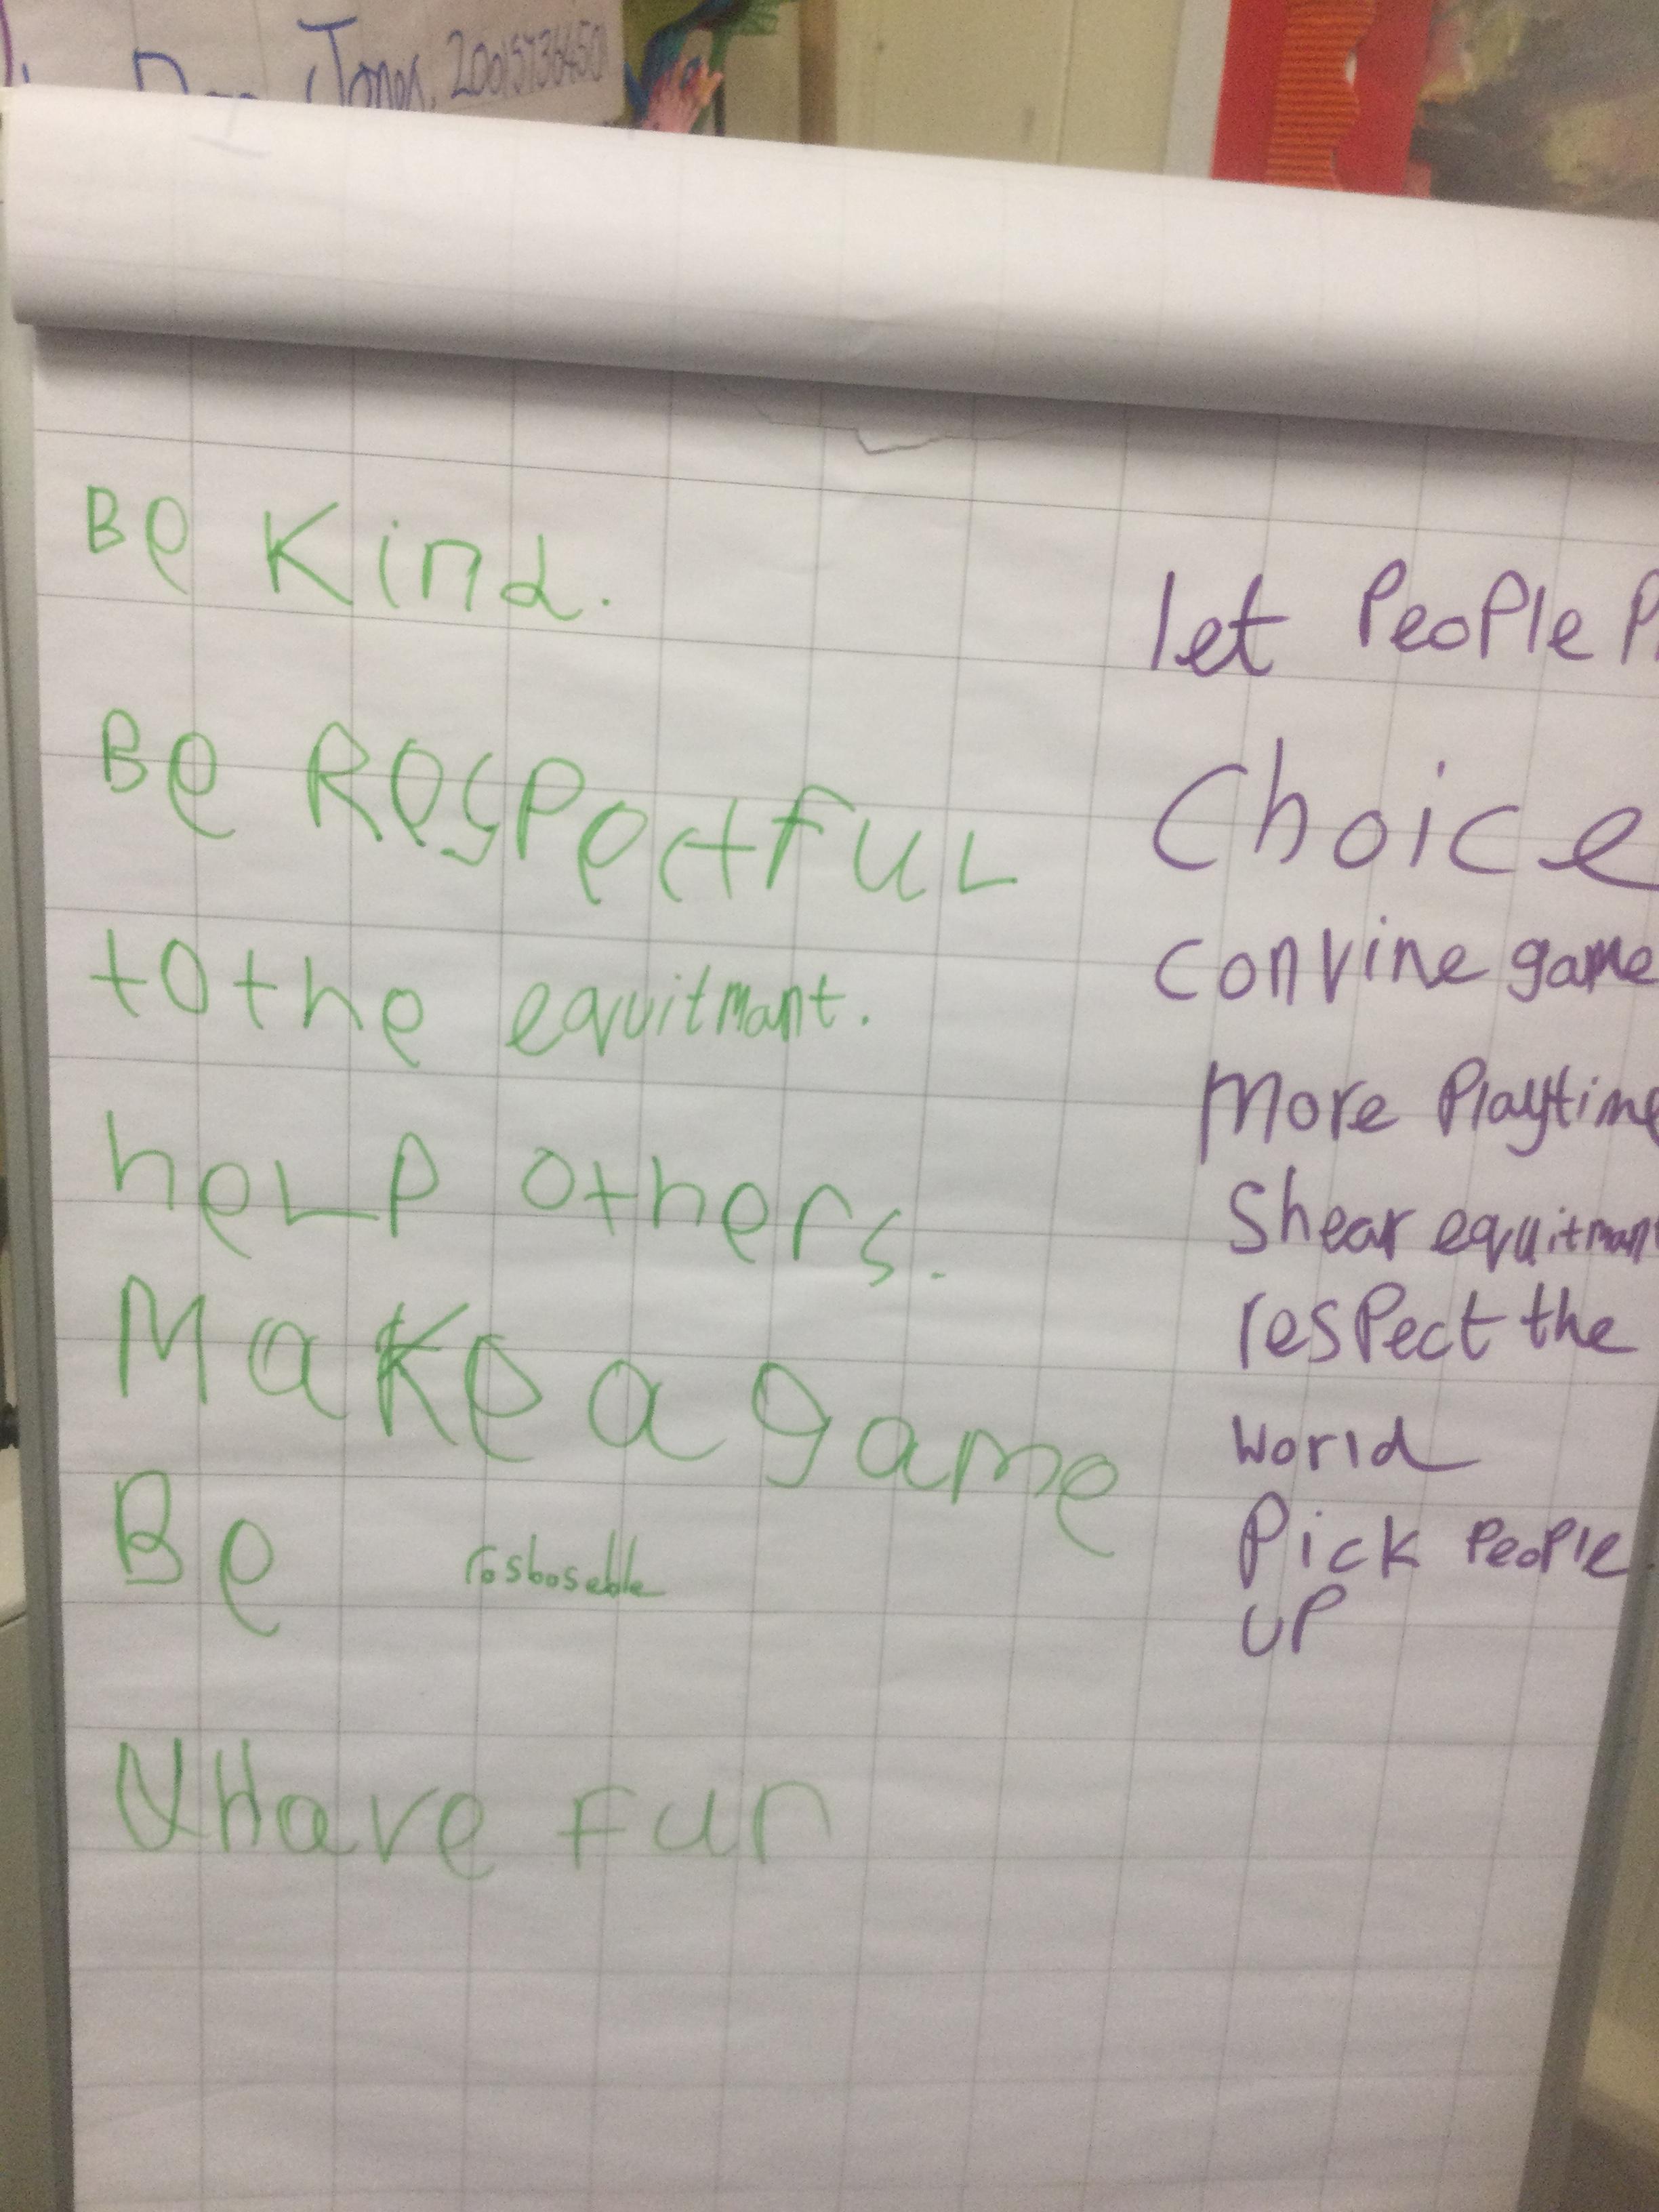 Jones, 20015736450
Be Kind.
Be Respectful
to the equitmant.
help others.
Make a game
Be rosboseble
Have fun
let People
Choice
convine game
More Playtime
Shear equitmant
respect the
world
Pick People
UP